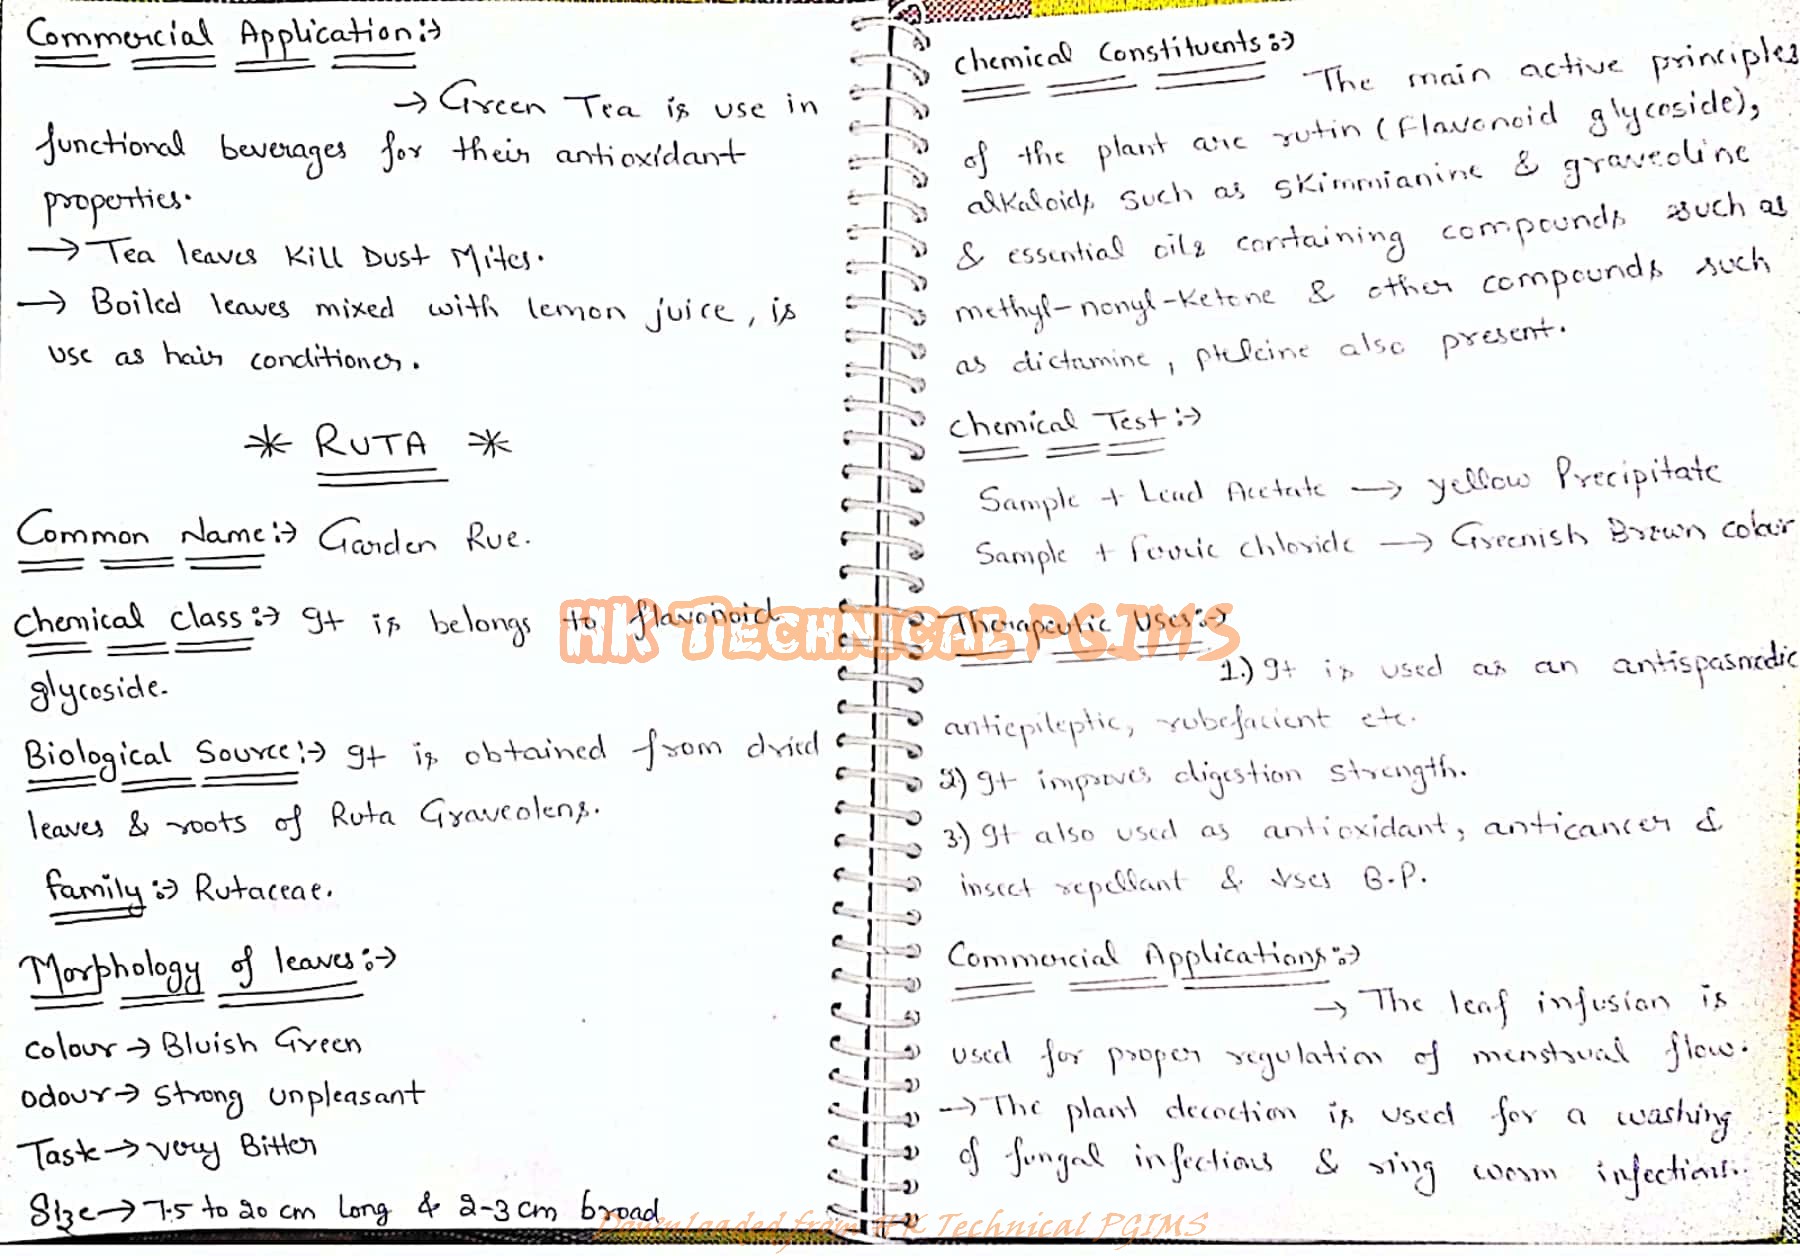 Commercial Application:→
→ Green Tea is use in
functional beverages for their antioxidant
properties.
→ Tea leaves Kill Dust Mites.
→ Boiled leaves mixed with lemon juice, is
use as hair conditioner.
* RUTA *
Common Name:→ Garden Rue.
Chemical Class:→ It is belongs to flavonoid
glycoside.
Biological Source:→ It is obtained from dried
leaves & roots of Ruta Graveolens.
family:→ Rutaceae.
Morphology of leaves:→
Colour→ Bluish Green
odour→ Strong unpleasant
Taste→ very Bitter
Size→ 7.5 to 20 cm long & 2-3 cm broad
Chemical Constituents:→
The main active principles
of the plant are rutin (Flavonoid glycoside),
alkaloids such as skimmianine & graveoline
& essential oils containing compounds such as
methyl-nonyl-Ketone & other compounds such
as dictamine, pteleine also present.
Chemical Test:→
Sample + Lead Acetate → yellow Precipitate
Sample + Ferric chloride → Greenish Brown colour
Therapeutic Uses:→
1.) It is used as an antispasmodic
antiepileptic, rubefacient etc.
2.) It improves digestion strength.
3.) It also used as antioxidant, anticancer &
insect repellant & ↓ses B.P.
Commercial Applications:→
→ The leaf infusion is
used for proper regulation of menstrual flow.
→ The plant decoction is used for a washing
of fungal infections & ring worm infections.
HK Technical PGIMS
Downloaded from HK Technical PGIMS